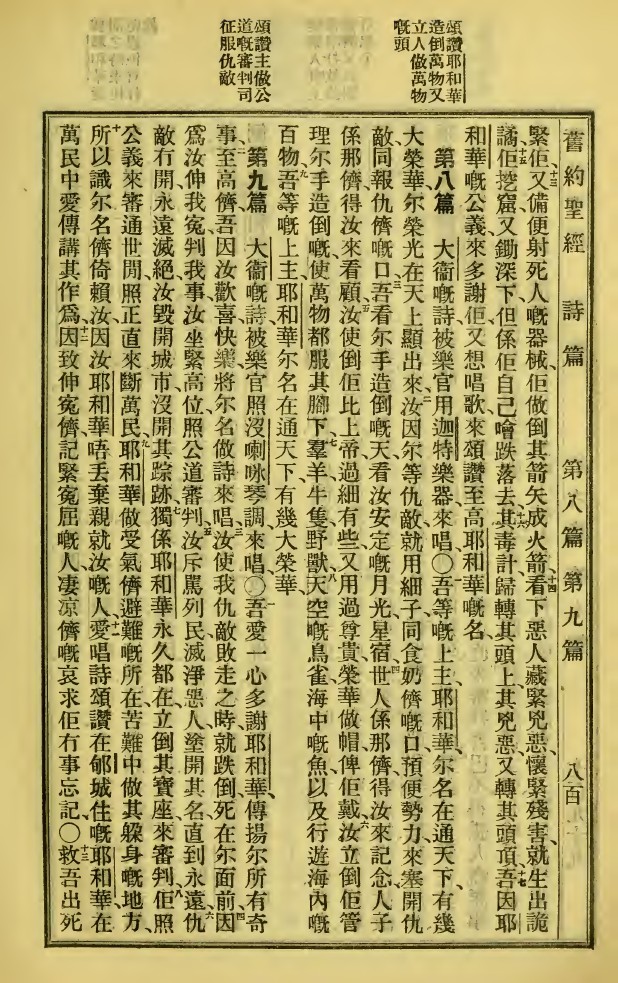 舊約聖經 詩篇 第八篇 第九篇 八百
頌讚耶和華
造倒萬物又
立人做萬物
嘅頭
頌讚主做公
道嘅審判司
征服仇敵
緊佢、又備便射死人嘅器械、佢做倒其箭矢成火箭、看下惡人藏緊兇惡、懷緊殘害、就生出詭
譎、佢挖窟又鋤深下、但係佢自己噲跌落去、其毒計歸轉其頭上、其兇惡又轉其頭頂、吾因耶
和華嘅公義、來多謝佢、又想唱歌來頌讚至高耶和華嘅名、
第八篇 大衞嘅詩、被樂官用迦特樂器來唱、〇吾等嘅上主耶和華、尔名在通天下有幾
大榮華、尔榮光在天上顯出來、汝因尔等仇敵、就用細子同食奶儕嘅口、預便勢力來塞開仇
敵同報仇儕嘅口、吾看尔手造倒嘅天、看汝安定嘅月光星宿、世人係那儕得汝來記念、人子
係那儕得汝來看顧、汝使倒佢比上帝過細有些、又用過尊貴榮華做帽俾佢戴、汝立倒佢管
理尔手造倒嘅、使萬物都服其腳下、羣羊牛隻野獸、天空嘅鳥雀、海中嘅魚、以及行遊海內嘅
百物、吾等嘅上主耶和華、尔名在通天下有幾大榮華、
第九篇 大衞嘅詩、被樂官照沒喇咏琴調來唱、〇吾愛一心多謝耶和華、傳揚尔所有奇
事、至高儕、吾因汝歡喜快樂、將尔名做詩來唱、汝使我仇敵敗走之時、就跌倒死在尔面前、因
爲汝伸我冤、判我事、汝坐緊高位、照公道審判、汝斥罵列民、滅淨惡人、塗開其名、直到永遠、仇
敵冇開、永遠滅絕、汝毀開城市、沒開其踪跡、獨係耶和華永久都在、立倒其寶座來審判、佢照
公義來審通世閒、照正直來斷萬民、耶和華做受氣儕避難嘅所在、苦難中做其躱身嘅地方、
所以識尔名儕倚賴汝、因汝耶和華唔丟棄親就汝嘅人、愛唱詩頌讚在郇城住嘅耶和華、在
萬民中愛傳講其作爲、因致伸冤儕記緊寃屈嘅人、凄凉儕嘅哀求、佢冇事忘記、〇救吾出死